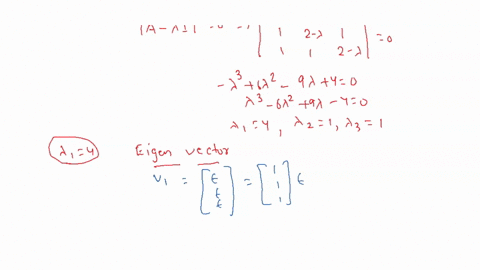 |A-λI| = 0 ⇒
| 1 2-λ 1 | = 0
| 1 1 2-λ |
-λ³ + 6λ² - 9λ + 4 = 0
λ³ - 6λ² + 9λ - 4 = 0
λ₁ = 4, λ₂ = 1, λ₃ = 1
λ₁ = 4 Eigen vector
V₁ = [t t t] = [1 1 1] t